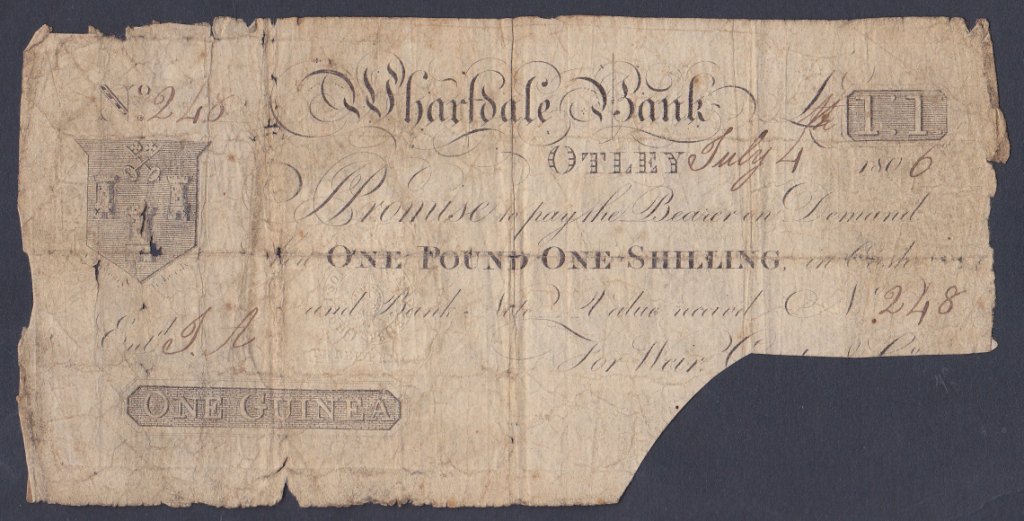 No. 248
Wharfdale Bank
£1.1
OTLEY July 4th 1806
I Promise to pay the Bearer on Demand
ONE POUND ONE SHILLING, in Cash
and Bank Note Value received No. 248
Entd. J. A
For Weir,
ONE GUINEA